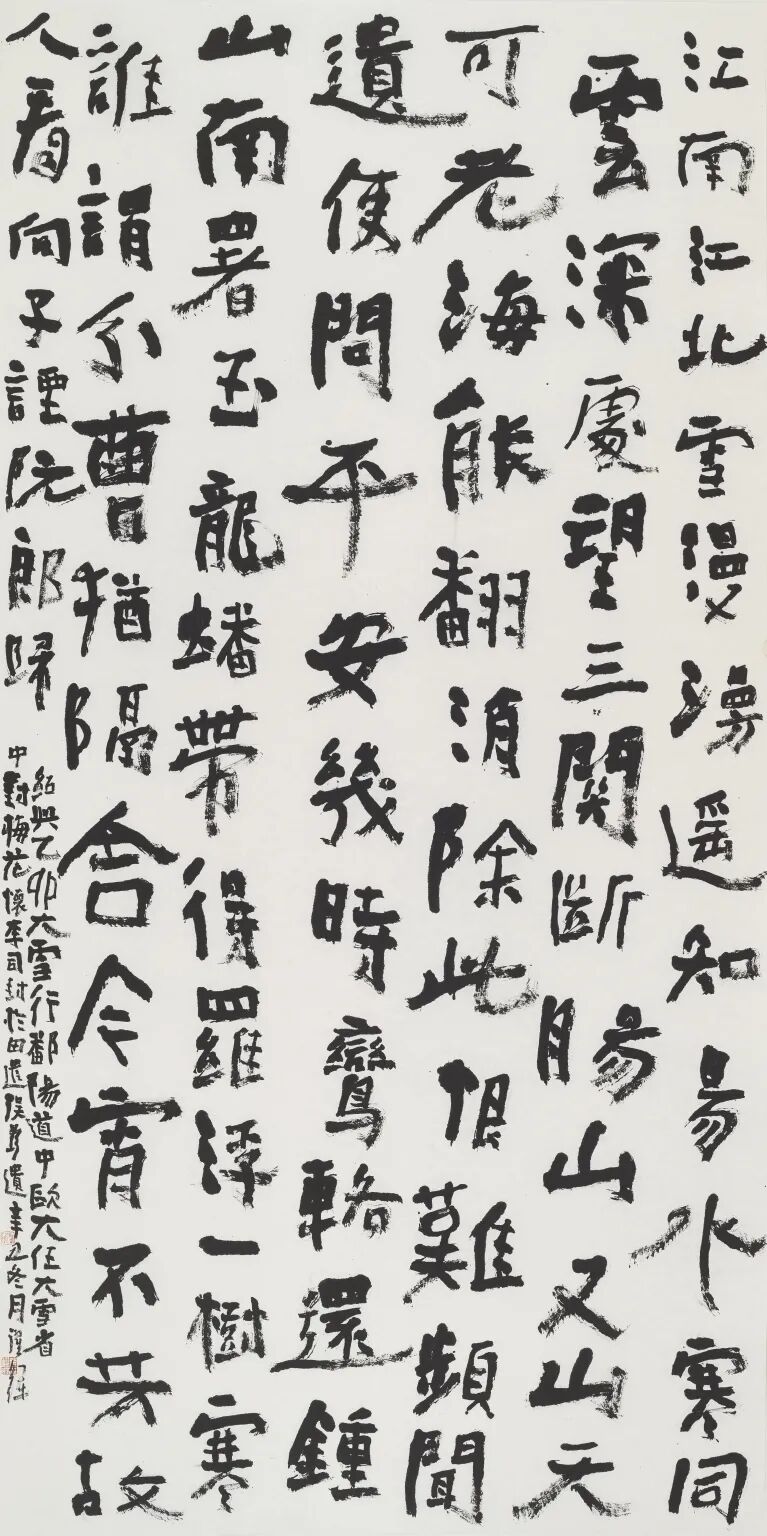 江南江北雪漫漫遥知易水寒同
雲深處望三關斷腸山又山天
可老海能翻消除此恨難頻聞
遺使問平安幾時鸞輅還鍾
山南署玉龍蟠帶得羅浮一樹寒
誰謂分曹猶隔舍今宵不芳故
人看向子諲阮郎歸
紹興乙卯大雪行鄱陽道中歐大任大雪省
中對梅花懷李司封於田還遺辛丑冬月